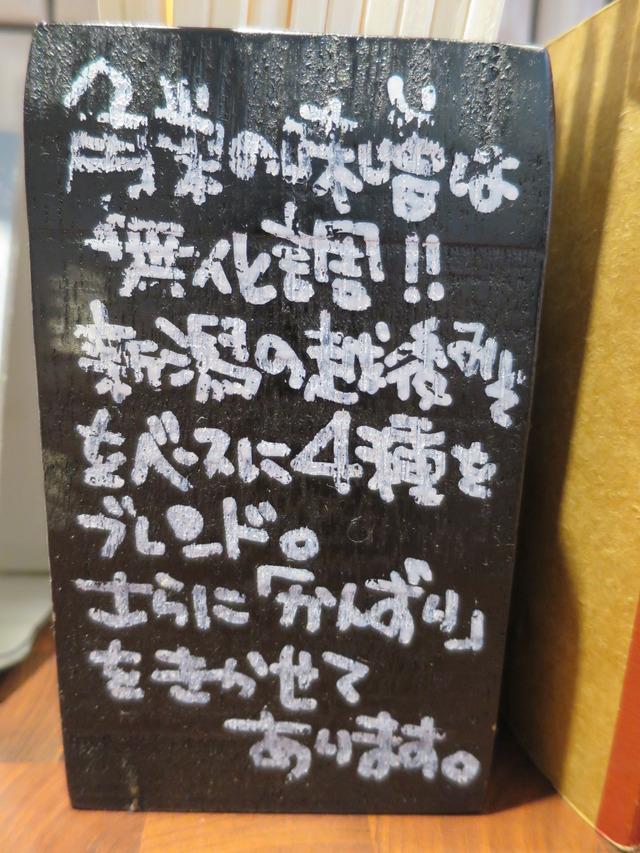 弥栄の味噌は
無化調!!
新潟の越後みそ
をベースに4種を
ブレンド。
さらに「かんずり」
をきかせて
あります。